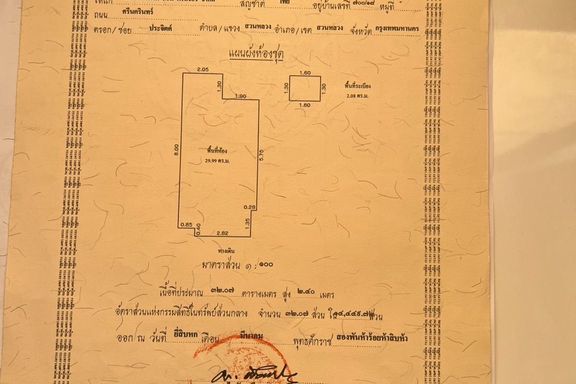 สัญชาติ ไทย อยู่บ้านเลขที่ หมู่ที่
ถนน ศรีนครินทร์
ตรอก/ซอย ประจิตต์ ตำบล/แขวง สวนหลวง อำเภอ/เขต สวนหลวง จังหวัด กรุงเทพมหานคร
แผนผังห้องชุด
2.05
1.30
1.90
8.00
พื้นที่ห้อง
29.99 ตร.ม.
5.70
0.28
1.35
0.85
0.40
2.82
ทางเดิน
1.60
1.30
1.30
1.60
พื้นที่ระเบียง
2.08 ตร.ม.
มาตราส่วน ๑ : ๑๐๐
เนื้อที่ประมาณ ๓๒.๐๗ ตารางเมตร สูง ๒.๔๐ เมตร
อัตราส่วนแห่งกรรมสิทธิ์ในทรัพย์ส่วนกลาง จำนวน ๓๒.๐๗ ส่วน ใน ส่วน
ออก ณ วันที่ ยี่สิบหก เดือน มีนาคม พุทธศักราช สองพันห้าร้อยห้าสิบห้า